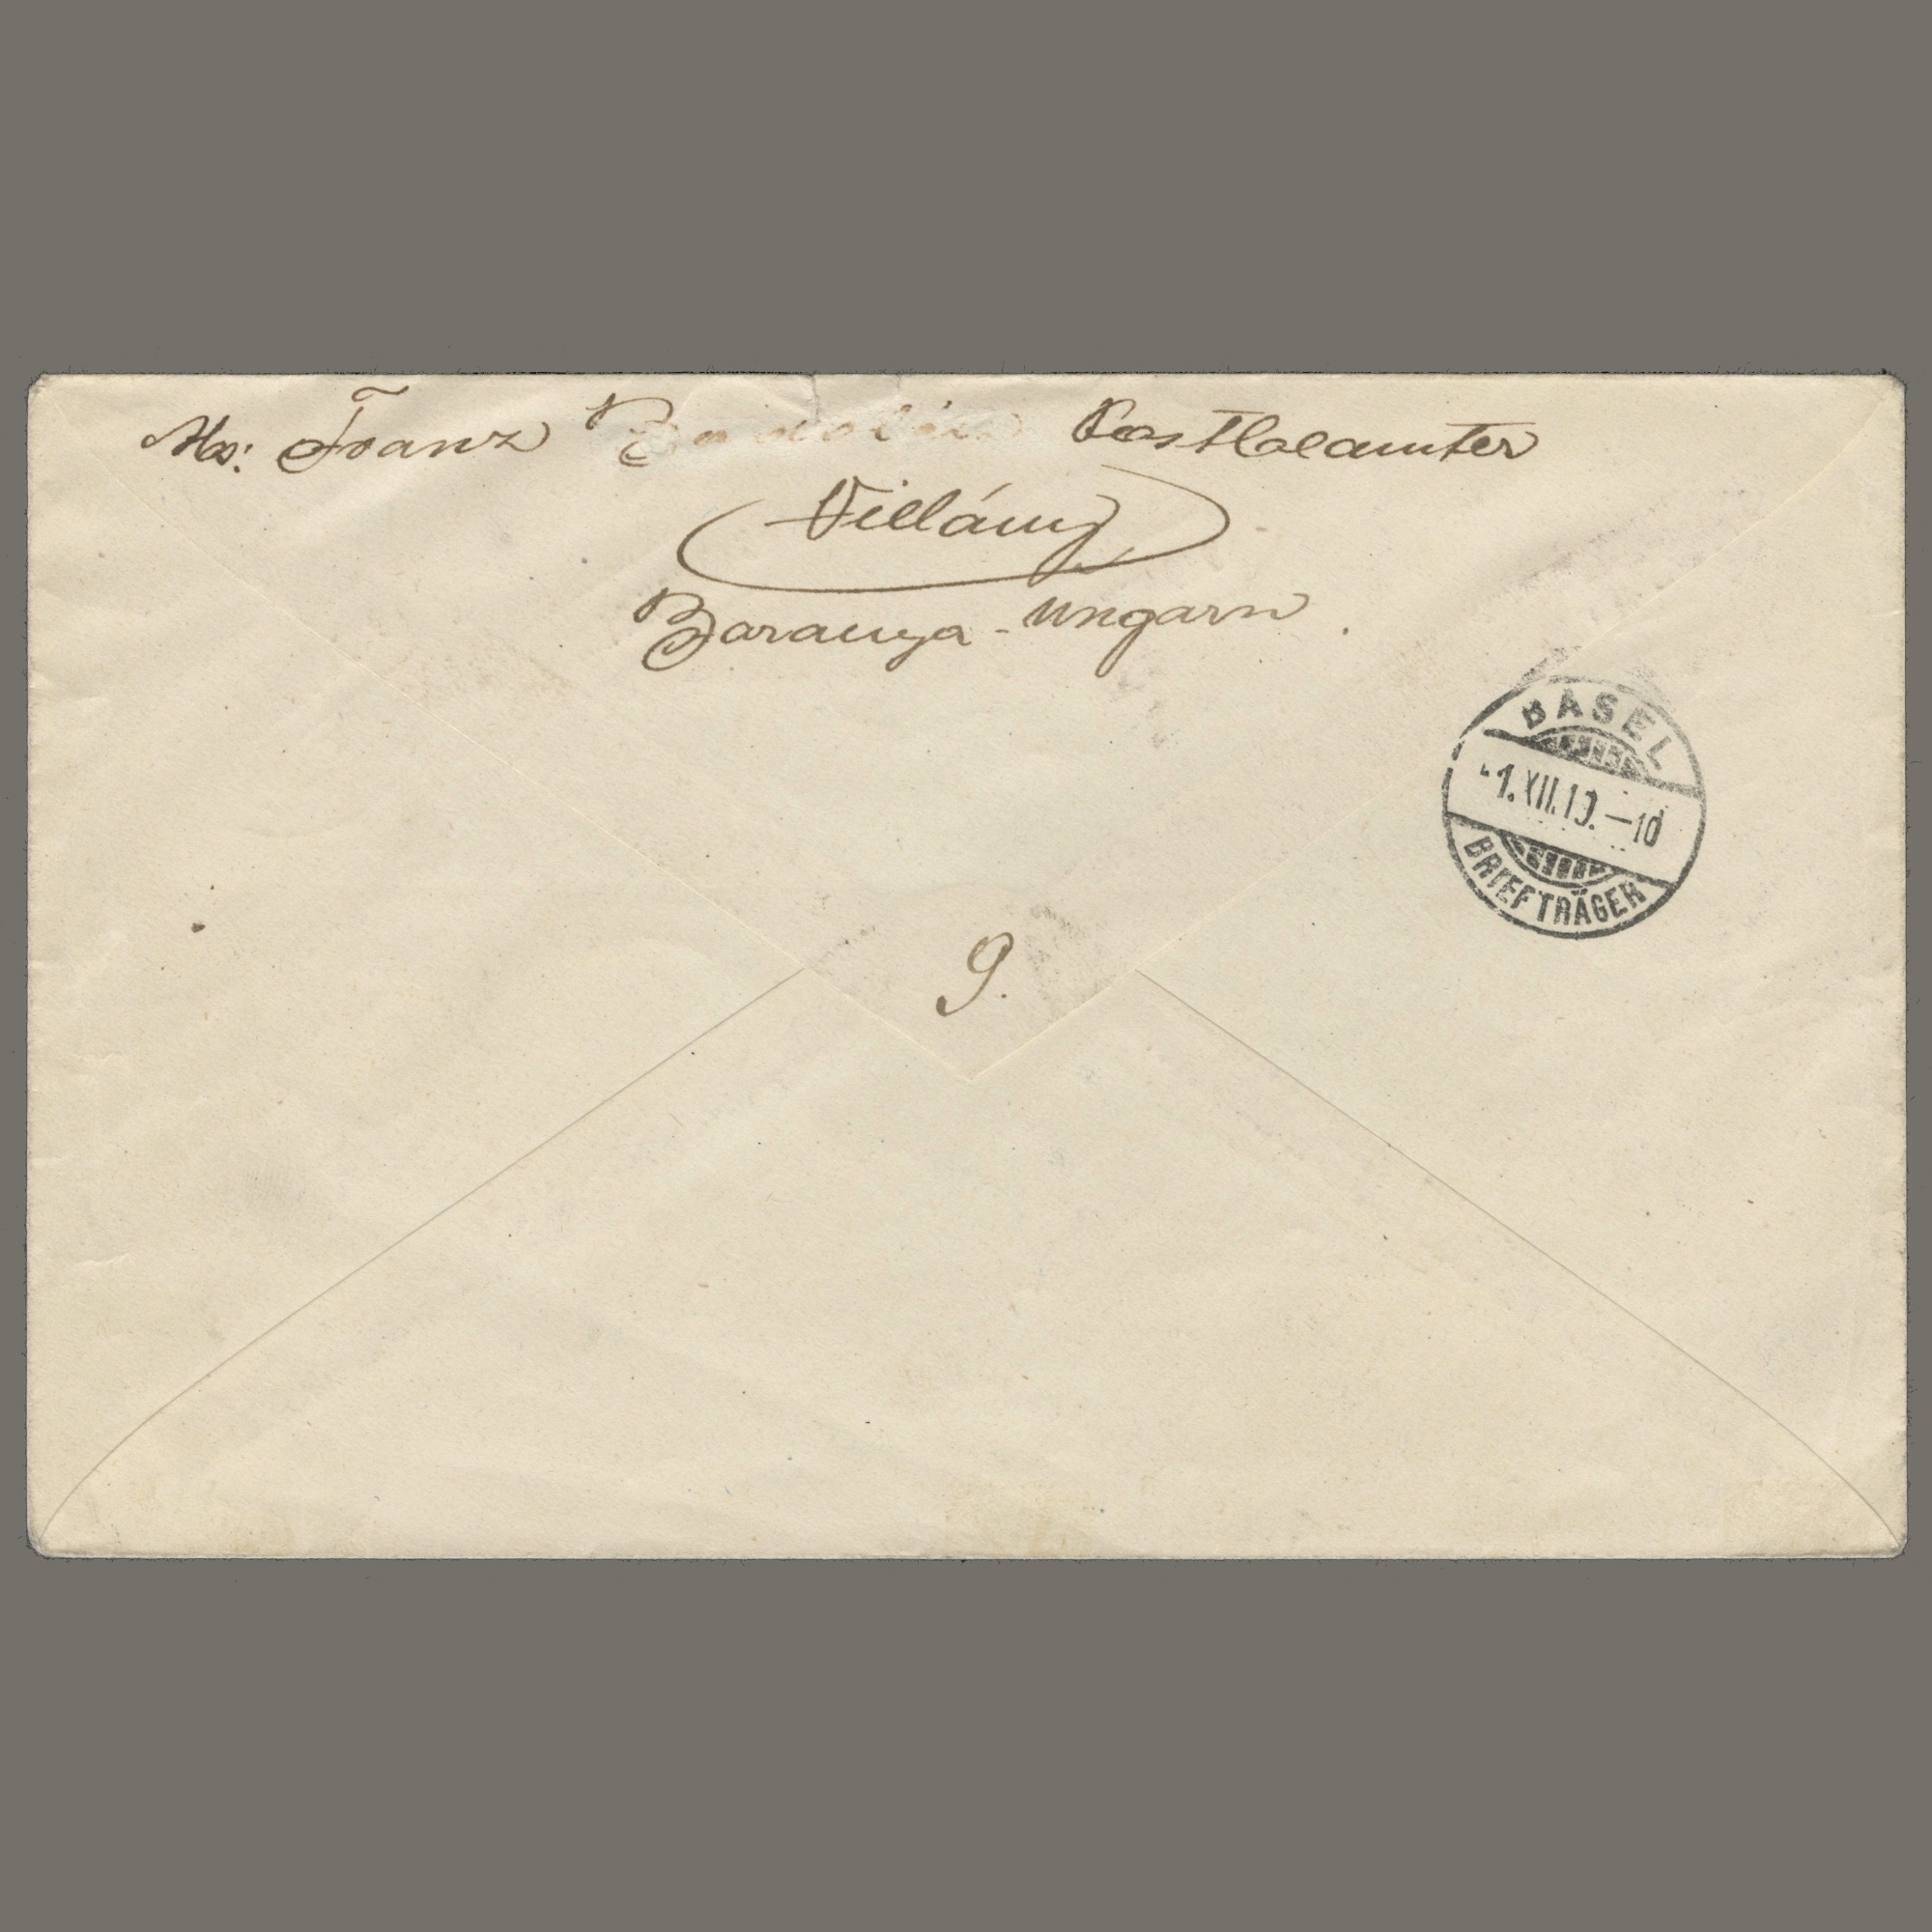 Abs: Franz Postbeamter
Villány
Baranya - Ungarn.
BASEL
1.XII.19.—10
BRIEFTRÄGER
9.